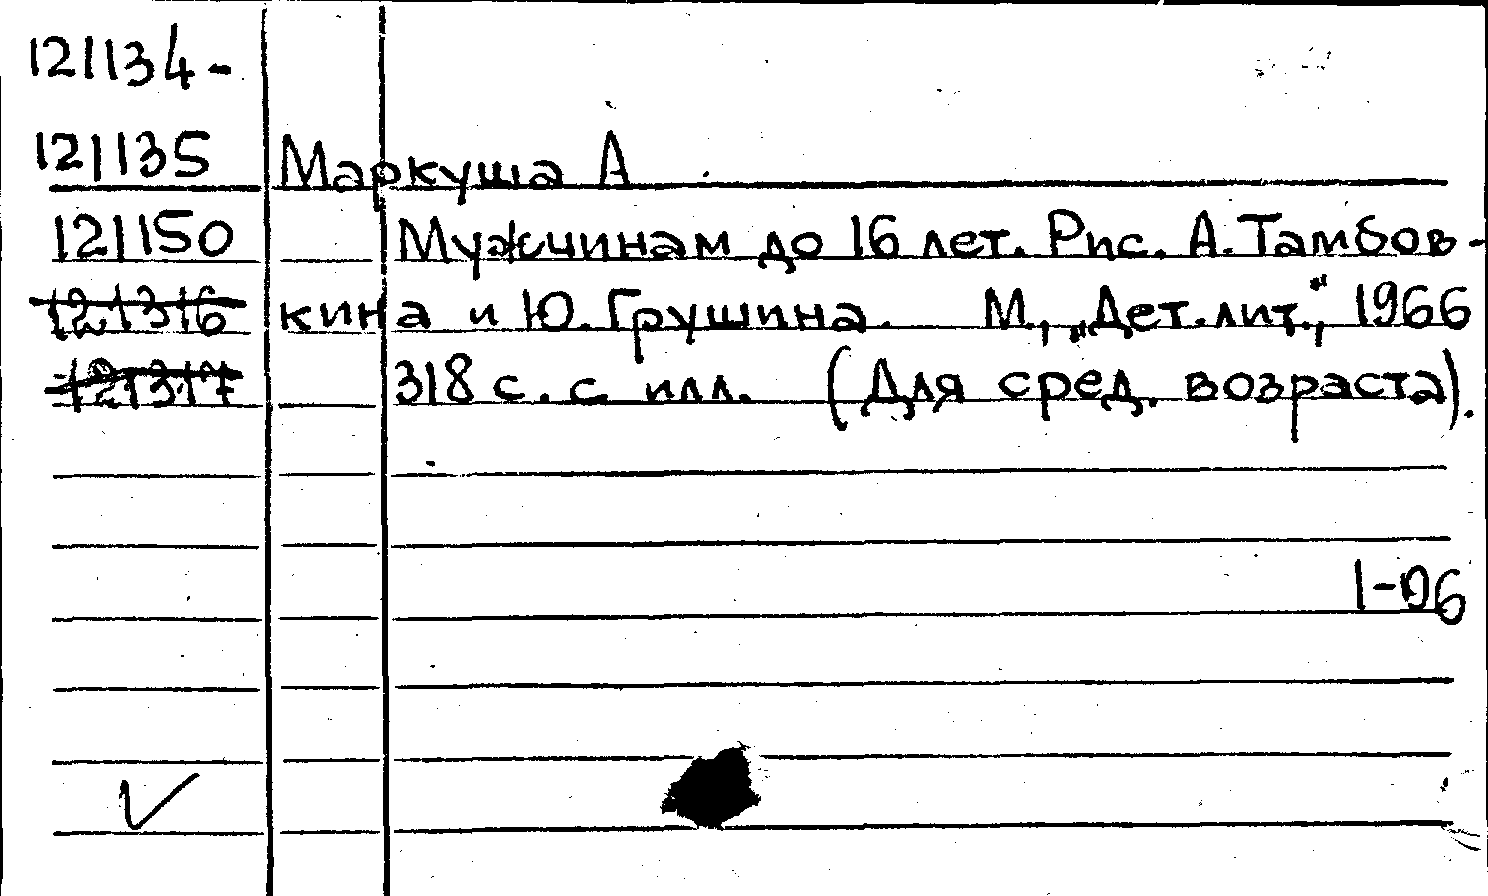 121134-
121135 Маркуша А
121150 Мужчинам до 16 лет. Рис. А. Тамбов-
121316 кина и Ю. Грушина. М., „Дет. лит.", 1966
121317 318 с. с илл. (Для сред. возраста).
1-06